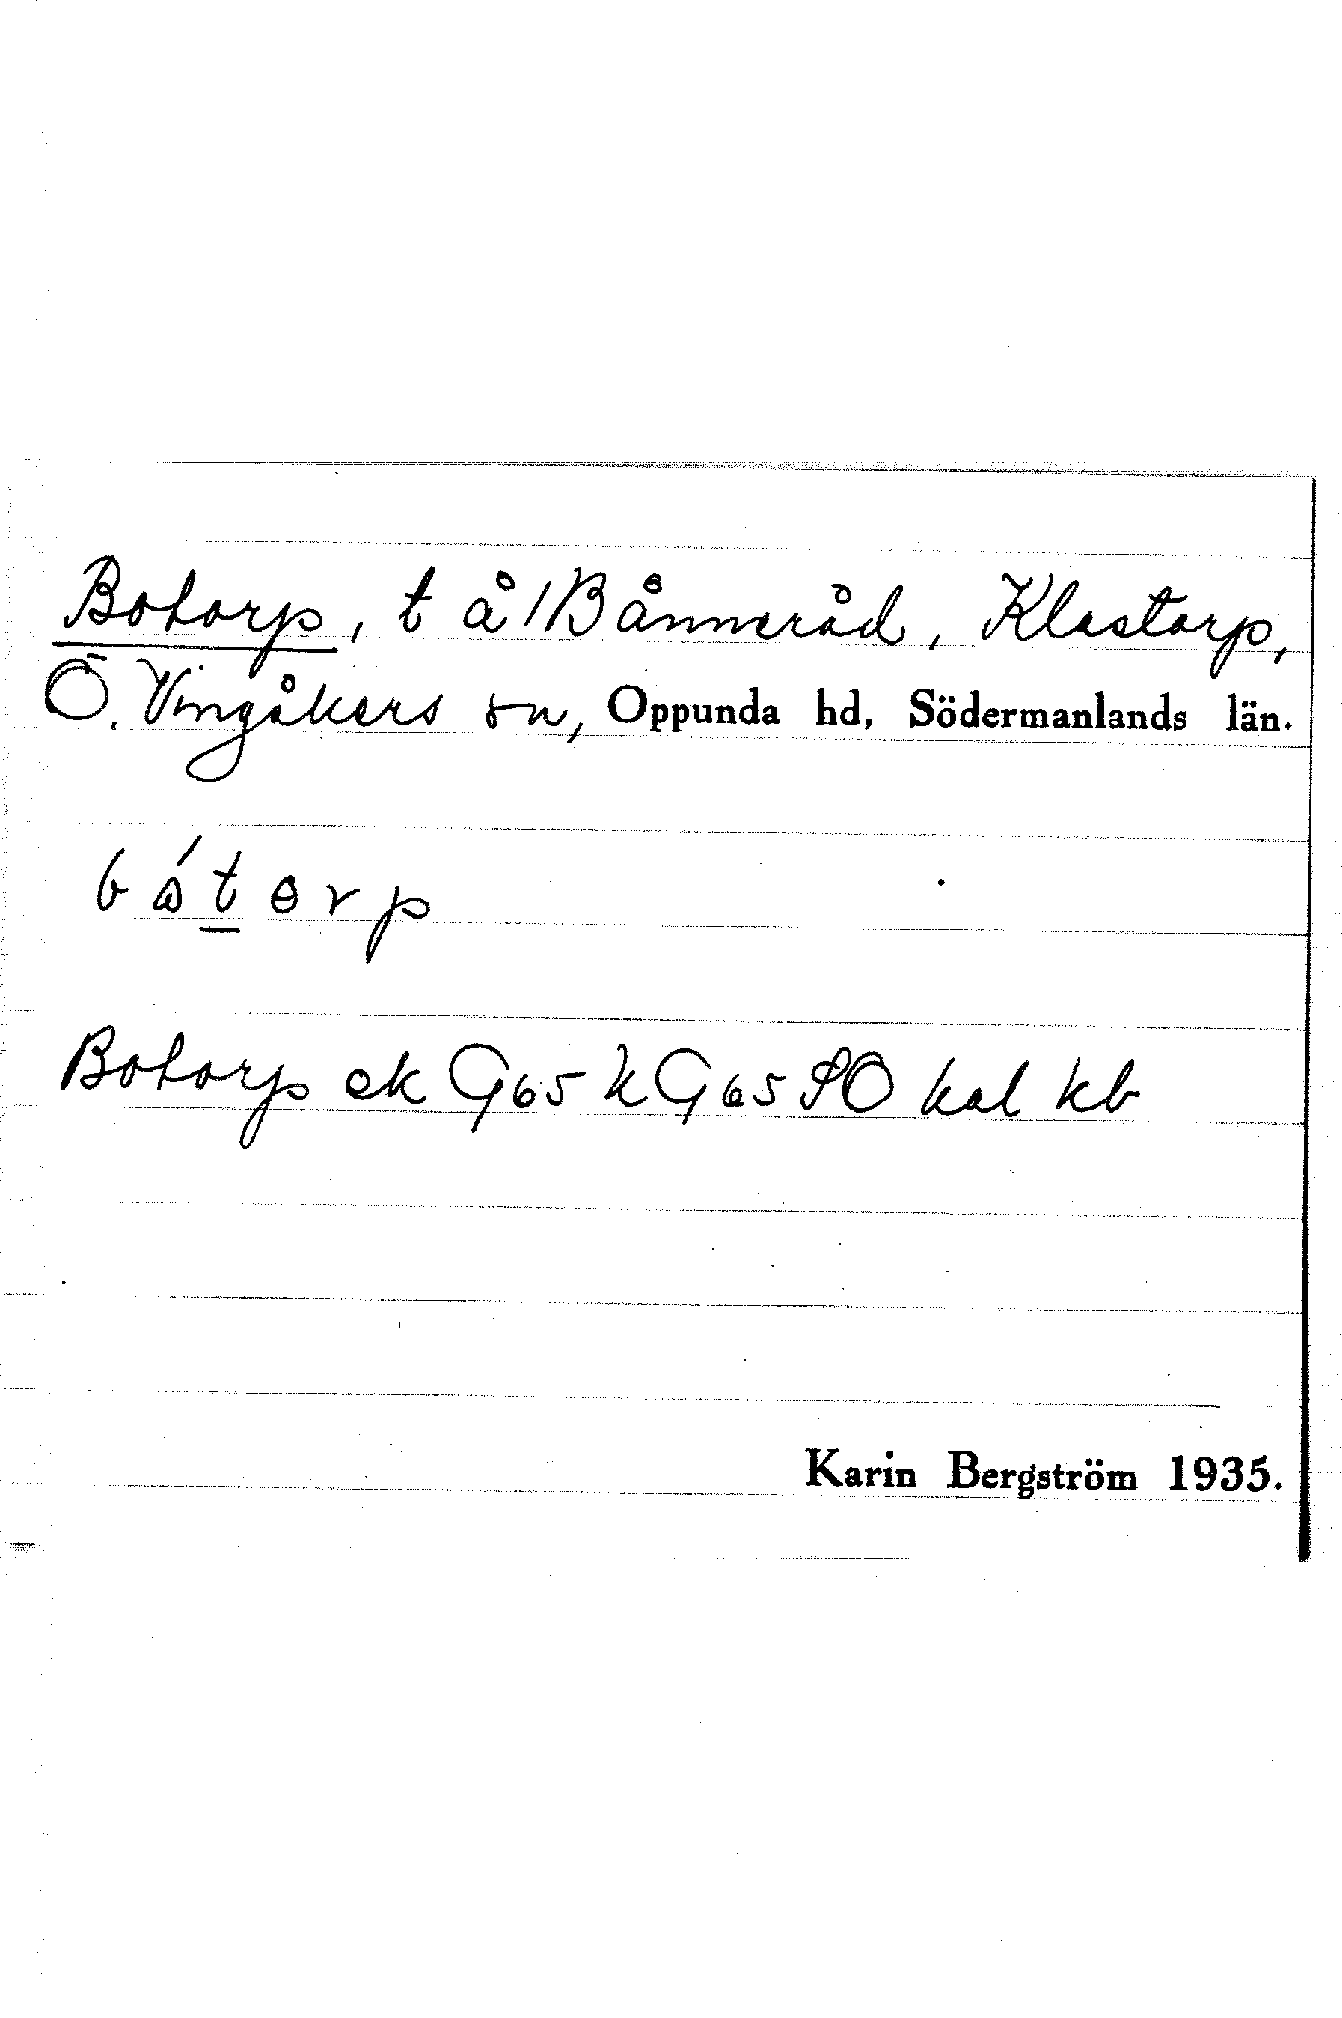 Botorp, t å/Bånneråd, Klastorp,
Ö. Vingåkers sn, Oppunda hd, Södermanlands län.
bótorp
Botorp ek G65 kG65 SO hal kb
Karin Bergström 1935.